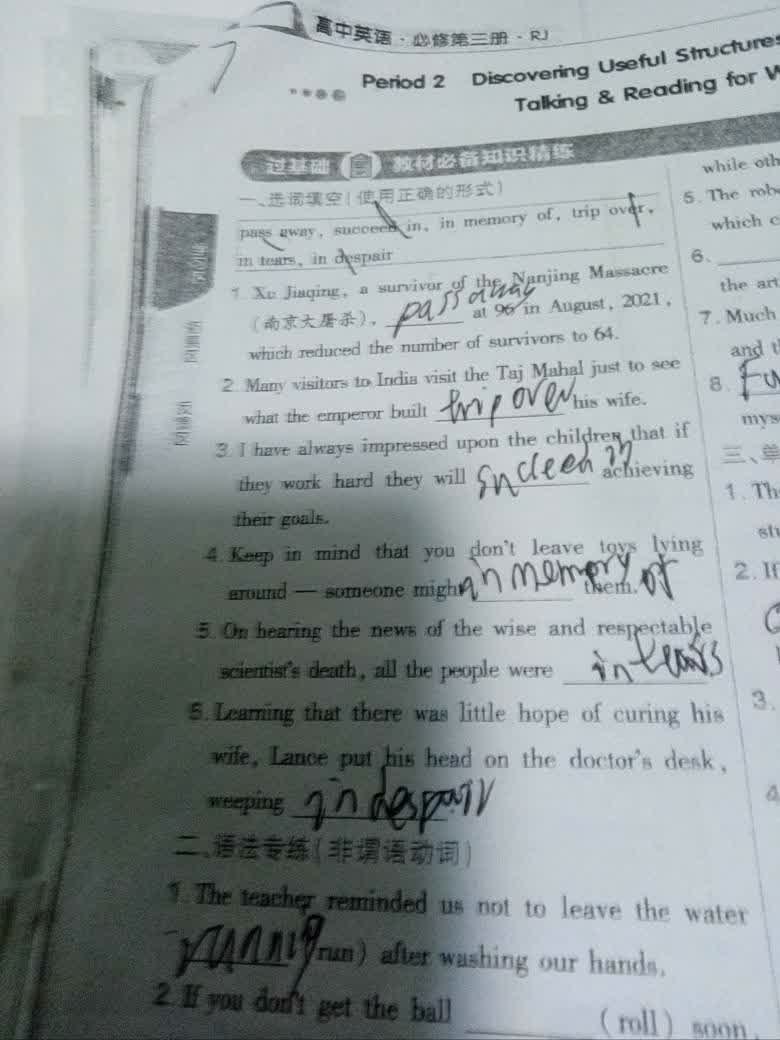 高中英语·必修第三册·RJ
Period 2 Discovering Useful Structures
Talking & Reading for
过基础 教材必备知识精练
一、选词填空(使用正确的形式)
pass away, succeed in, in memory of, trip over,
in tears, in despair
1. Xu Jiaqing, a survivor of the Nanjing Massacre
(南京大屠杀), pass away at 96 in August, 2021,
which reduced the number of survivors to 64.
2. Many visitors to India visit the Taj Mahal just to see
what the emperor built trip over his wife.
3. I have always impressed upon the children that if
they work hard they will achieving
their goals.
4. Keep in mind that you don't leave toys lying
around — someone might in memory of them.
5. On hearing the news of the wise and respectable
scientist's death, all the people were in tears
6. Learning that there was little hope of curing his
wife, Lance put his head on the doctor's desk,
weeping in despair
二、语法专练(非谓语动词)
1. The teacher reminded us not to leave the water
(run) after washing our hands.
2. If you don't get the ball ______ (roll) soon,
while
5. The
which
6. ______
the
7. Much
and
8.
三、
1.
2. If
3.
4